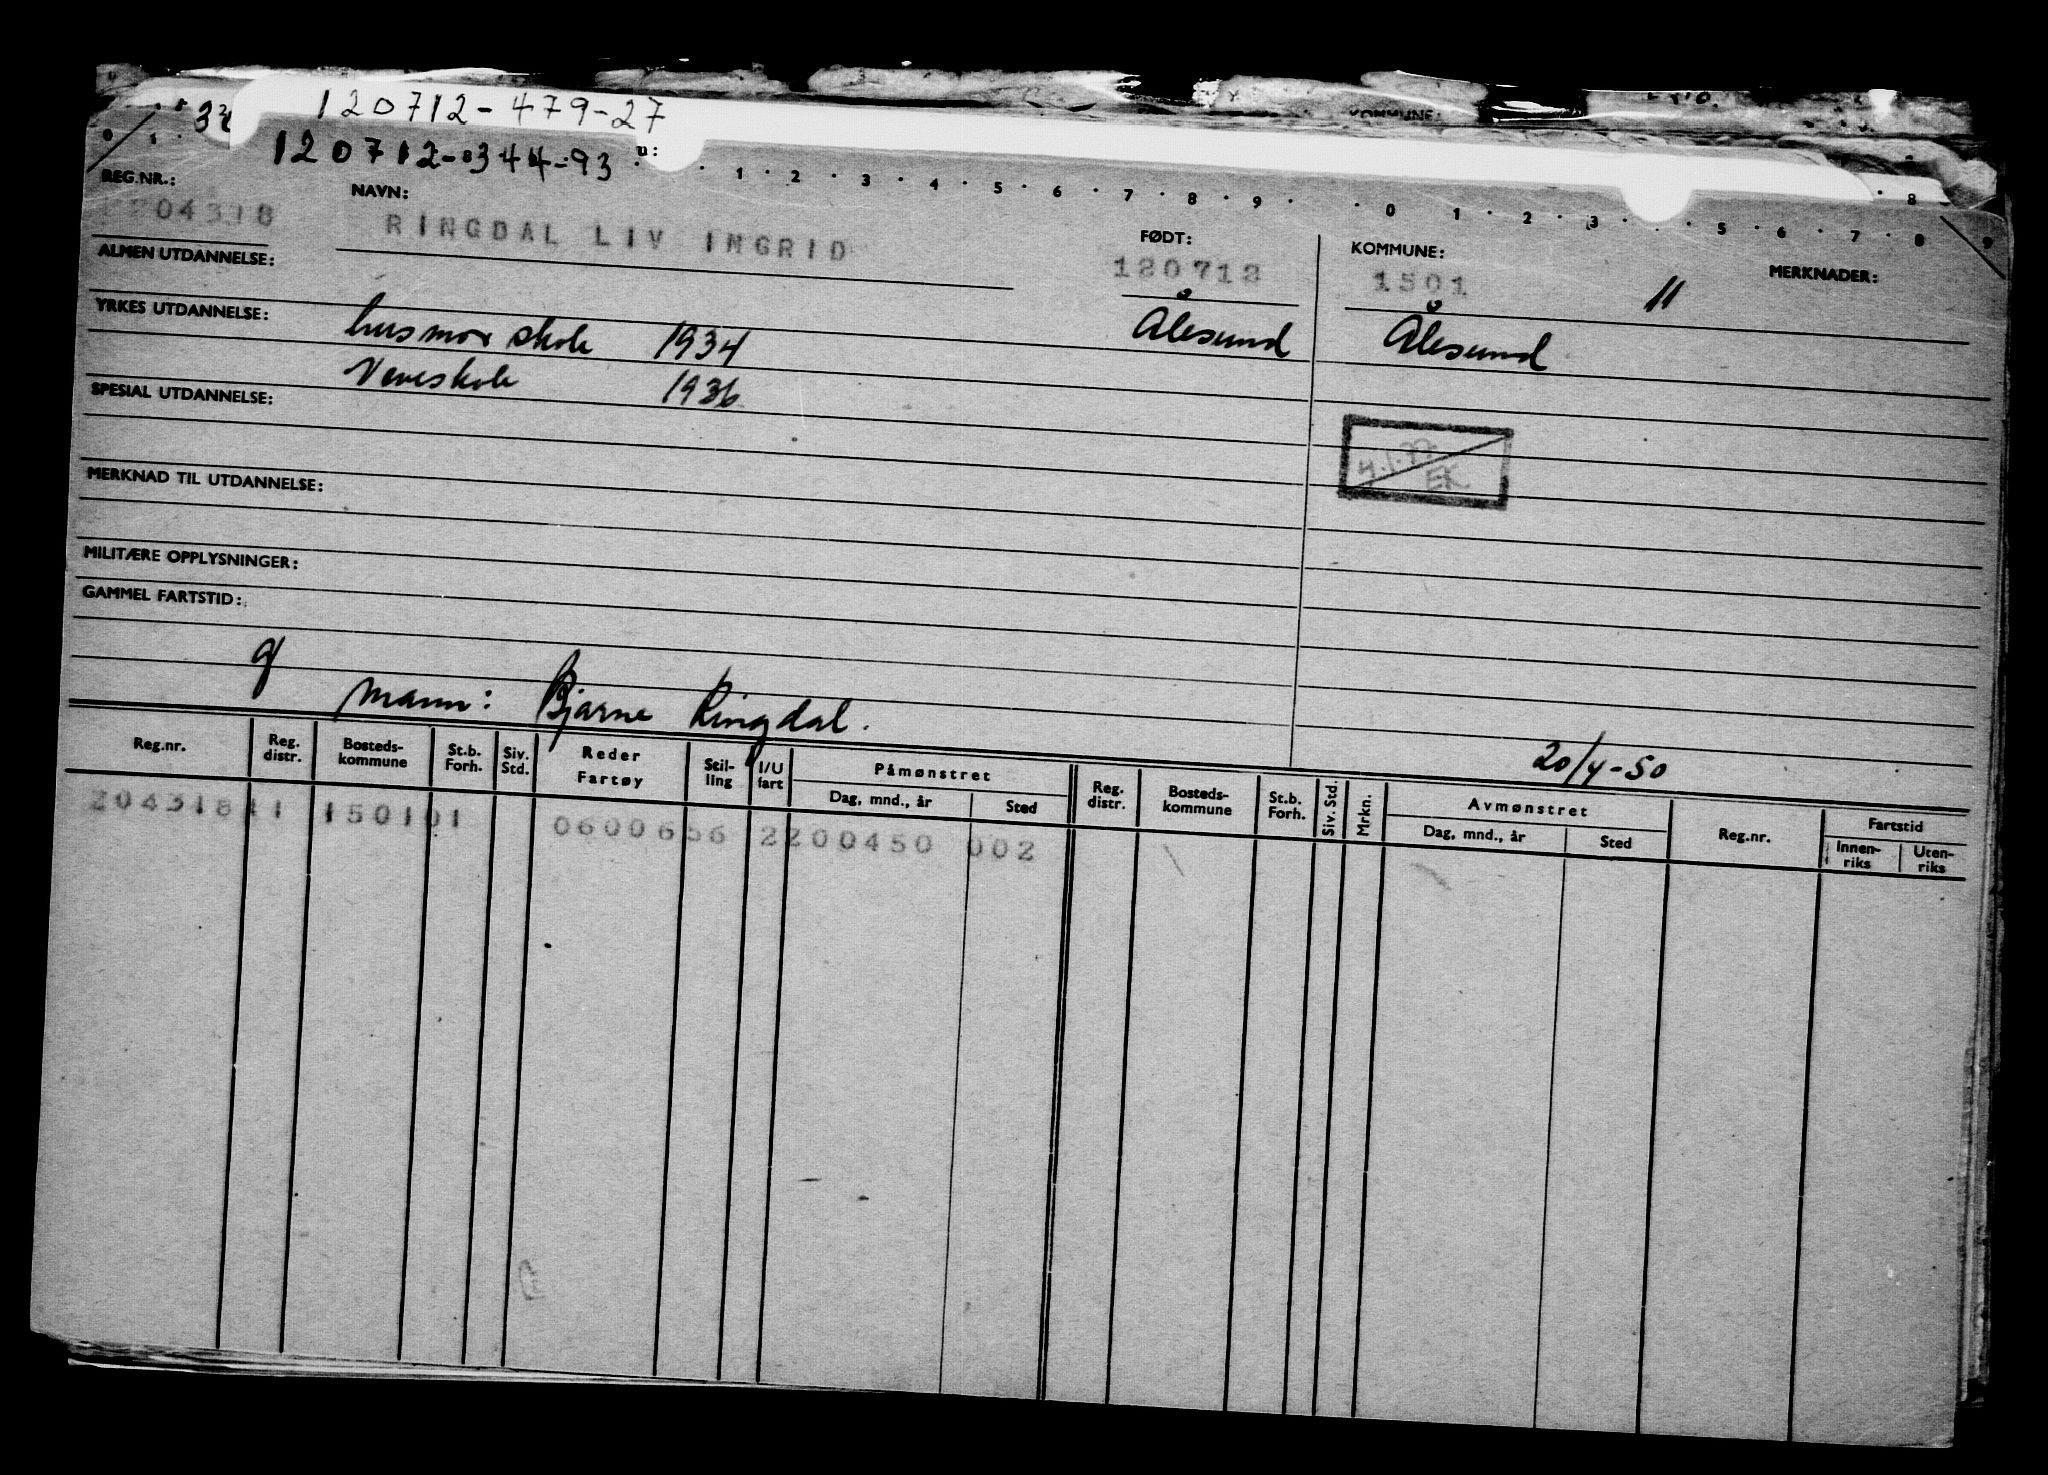 KOMMUNE:
120712-479-27
120712-344-93
0 1 u: 1 2 3 4 5 6 7 8 9 0 1 2 3 5 6 7 8 9
REG.NR.: NAVN: FØDT: KOMMUNE: MERKNADER:
204318 RINGDAL LIV INGRID 120712 1501 11
ALMEN UTDANNELSE:
Ålesund Ålesund
YRKES UTDANNELSE: husmorskole 1934
Veveskole 1936
SPESIAL UTDANNELSE:
4.1.77
EK
MERKNAD TIL UTDANNELSE:
MILITÆRE OPPLYSNINGER:
GAMMEL FARTSTID:
g mann: Bjarne Ringdal.
20/4-50
Reg.nr. Reg. distr. Bosteds-kommune St.b. Forh. Siv. Std. Reder Fartøy Stil-ling I/U fart Påmønstret Dag, mnd., år Sted Reg. distr. Bosteds-kommune St.b. Forh. Siv. Std. Mrkn. Avmønstret Dag, mnd., år Sted Reg.nr. Fartstid Innen-riks Uten-riks
20431811 150101 0600656 2200450 002